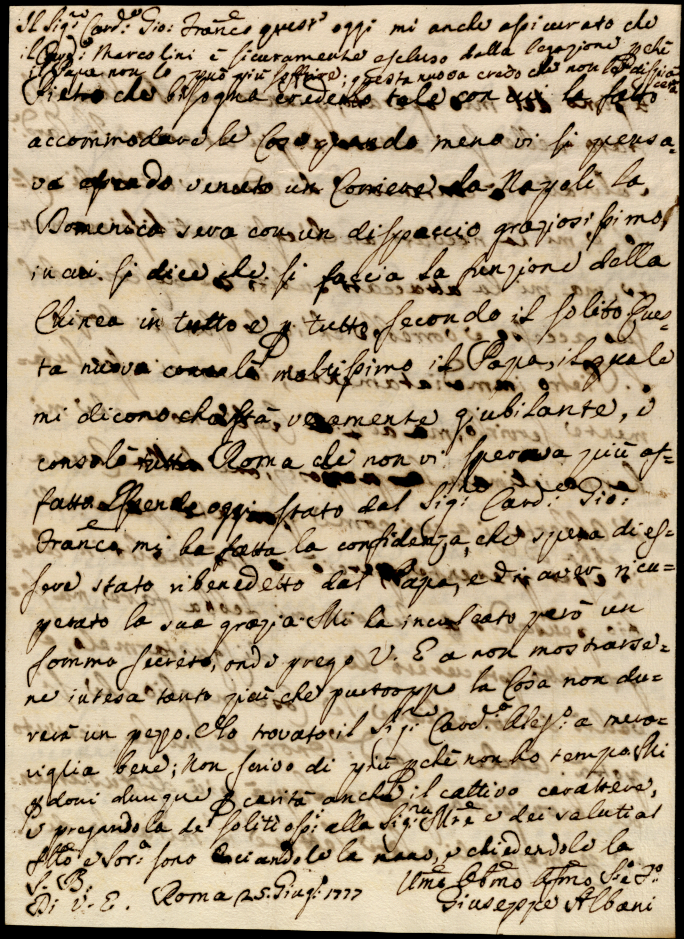 Il Sig.r Card.l Gio: Franc.o quest' oggi mi anche assicurato che
il Card.l Marcolini è sicuramente escluso dalla legazione p chè
il Papa non lo può più soffrire; questa nuova credo che non le dispia
Pietro che bisogna crederlo tale con cui ha fatto
accommodare le Cose quando meno vi si pensa=
va essendo venuto un Corriere da Napoli la
Domenica sera con un dispaccio graziosissimo
in cui si dice che si faccia la funzione della
Chinea in tutto e p tutto secondo il solito. Ques=
ta nuova consolò moltissimo il Papa, il quale
mi dicono che stà veramente giubilante, e
consolò tutta Roma che non vi sperava più af=
fatto. Essendo oggi stato dal Sig.r Card.l Gio:
Franc.o mi ha fatta la confidenza, che spera di es=
sere stato ribenedetto dal Papa, e di aver ricu=
perato la sua grazia. Mi ha inculcato però un
sommo secreto, onde prego V. E a non mostrarse=
ne intesa tanto più che purtroppo la Cosa non du=
rerà un pezzo. Ho trovato il Sig.r Card.l Aless.o a mera=
viglia bene; Non scrivo di più p chè non ho tempo. Mi
p doni dunque p carità anche il cattivo carattere,
e pregandola de' soliti ossi alla Sig.ra Mre e dei saluti al
Fllo e Sor.a sono baciandole la mano, e chiedendole la
S. B.
Di V. E. Roma 25. Giug.o 1777
Giuseppe Albani